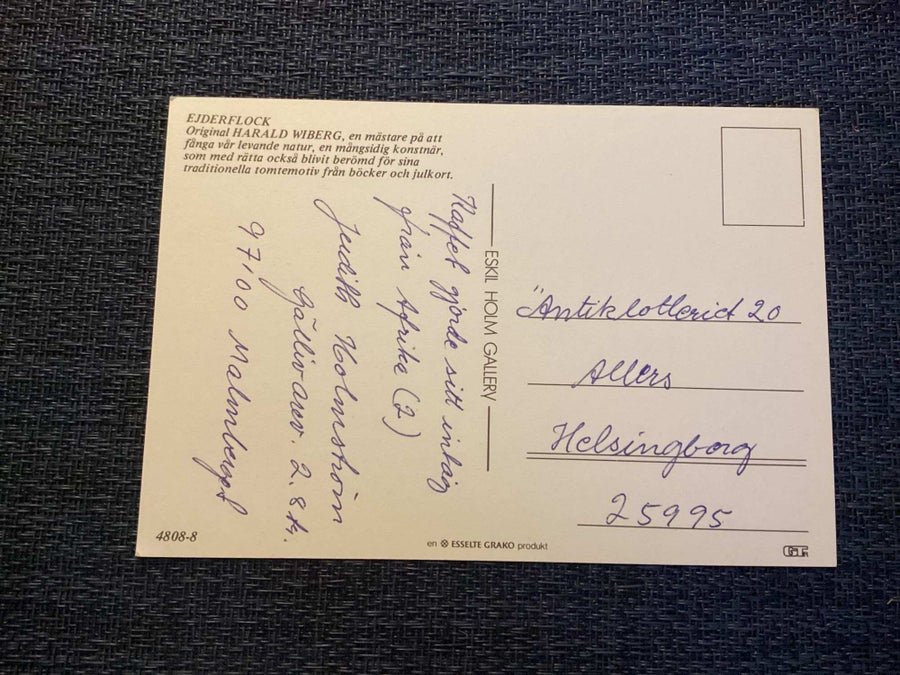 EJDERFLOCK
Original HARALD WIBERG, en mästare på att
fånga vår levande natur, en mångsidig konstnär,
som med rätta också blivit berömd för sina
traditionella tomtemotiv från böcker och julkort.
Kaffet gjorde sitt intåg
från Afrika (2)
Judith Holmström
Gällivarev. 2. 8 tr.
97100 Malmberget
ESKIL HOLM GALLERY
"Antiklotteriet 20
Allers
Helsingborg
25995
4808-8
en ESSELTE GRAKO produkt